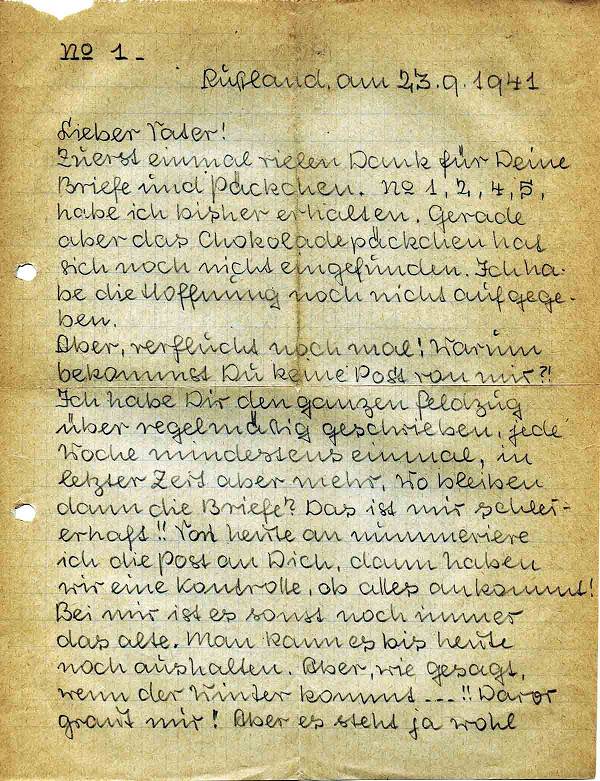 No 1.-
Rußland, am 23.9.1941
Lieber Vater!
Zuerst einmal vielen Dank für Deine
Briefe und Päckchen. No 1, 2, 4, 5,
habe ich bisher erhalten. Gerade
aber das Chokoladepäckchen hat
sich noch nicht eingefunden. Ich ha-
be die Hoffnung noch nicht aufgege-
ben.
Aber, verflucht noch mal! Warum
bekommst Du keine Post von mir?!
Ich habe Dir den ganzen Feldzug
über regelmäßig geschrieben, jede
Woche mindestens einmal, in
letzter Zeit aber mehr. Wo bleiben
dann die Briefe? Das ist mir schlei-
erhaft!! Von heute an nummeriere
ich die Post an Dich, dann haben
wir eine Kontrolle, ob alles ankommt!
Bei mir ist es sonst noch immer
das alte. Man kann es bis heute
noch aushalten. Aber, wie gesagt,
wenn der Winter kommt ---!! Davor
graut mir! Aber es steht ja wohl